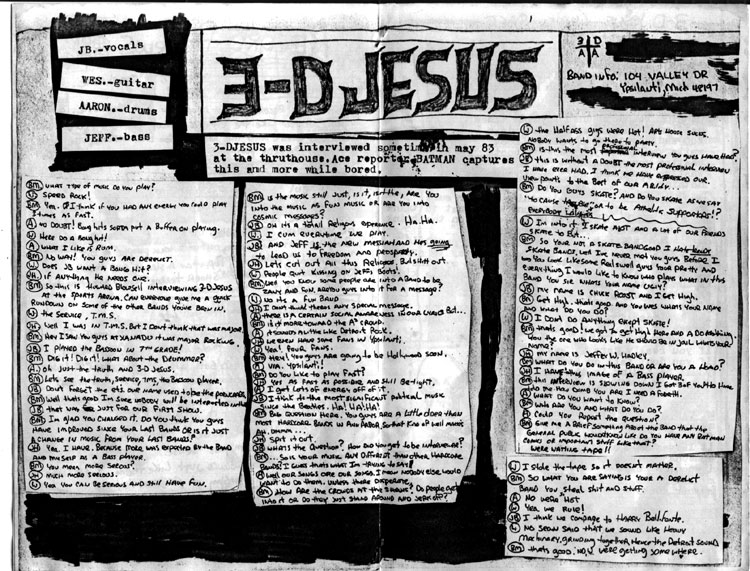 JB.-vocals
WES.-guitar
AARON.-drums
JEFF.-bass
3-D JESUS
3 D
A A
BAND INFO: 104 VALLEY DR
Ypsilanti, Mich 48197
3-DJESUS was interviewed sometime in may 83
at the thruthouse. Ace reporter BATMAN captures
this and more while bored.
BM WHAT TYPE OF MUSIC DO YOU PLAY?
SPEED ROCK!
BM YEA. IF I THINK IF YOU HAD ANY ENERGY YOU COULD PLAY
TIMES AS FAST.
NO DOUBT! BONG HITS SORTA PUT A BUFFER ON PLAYING.
HERE DO A BONGHIT!
WHAT I LIKE IS RUM.
BM NO WAY! YOU GUYS ARE DERELICT.
DOES JB WANT A BONG HIT?
IF ANYTHING HE NEEDS ONE.
BM SO THIS IS HOWARD INTERVIEWING 3-D JESUS
AT THE SPORTS ARENA, CAN EVERYONE GIVE ME A QUICK
RUNDOWN ON SOME OF THE OTHER BANDS YOU'VE BEEN IN.
THE SERVICE, T.M.S.
WELL I WAS IN T.M.S. BUT I DON'T THINK THAT WAS MAJOR.
BM HEY I SAW YOU GUYS AT XANADU! IT WAS MAJOR ROCKING.
JB I PLAYED THE BASSOON IN 7th GRADE!
BM DIG IT! DIG IT! WHAT ABOUT THE DRUMMER?
OH JUST THE TRUTH AND 3-D JESUS.
BM LETS SEE THE TRUTH, SERVICE, TMS, THE BASSOON PLAYER,
DON'T FORGET THE OUR NAME USED TO BE THE
BM WELL THATS GOOD IM SURE NOBODY WILL BE INTERESTED IN THIS
JB THAT WAS JUST FOR OUR FIRST SHOW.
BM IM GLAD YOU CHANGED IT. DO YOU THINK YOU GUYS
HAVE IMPROVED SINCE YOUR LAST BANDS OR IS IT JUST
A CHANGE IN MUSIC FROM YOUR LAST BANDS?
YES, I HAVE, BECAUSE MORE WAS EXPECTED BY THE BAND
AND MYSELF AS A BASS PLAYER.
BM YOU MEAN MORE SERIOUS?
MUCH MORE SERIOUS.
YEA YOU CAN BE SERIOUS AND STILL HAVE FUN.
BM IS THE MUSIC STILL JUST, IS IT, IS IT THE, ARE YOU
INTO THE MUSIC AS FUN MUSIC OR ARE YOU INTO
COSMIC MESSAGES?
JB OH ITS A TOTAL RELIGOUS EXPERIENCE. HA.HA.
I CUM EVERYTIME WE PLAY.
JB AND JEFF IS THE NEW MESSIAH AND HES GOING
TO LEAD US TO FREEDOM AND PROSPERITY.
LETS CUT ALL THIS RELIGOUS BULLSHIT OUT.
PEOPLE QUIT KISSING ON JEFFS BOOTS.
BM WELL YOU KNOW SOME PEOPLE ARE INTO A BAND TO BE
FUNNY AND FUN, ARE YOU GUYS INTO IT FOR A MESSAGE?
NO ITS A FUN BAND
I DON'T THINK THERES ANY SPECIAL MESSAGE.
THERE IS A CERTAIN SOCIAL AWARENESS IN OUR LYRICS BUT...
BM IS IT MORE AROUND THE A² GROUP.
IT SOUNDS ALOT LIKE DETROIT ROCK.
WE EVEN HAVE SOME FANS IN YPSILANTI,
YEA! FOUR FANS.
BM HEY! YOU GUYS ARE GOING TO BE HOLLYWOOD SOON.
VIA. YPSILANTI!
BM DO YOU LIKE TO PLAY FAST?
YES AS FAST AS POSSIBLE AND STILL BE TIGHT.
I GET LOTS OF ENERGY OFF OF IT.
JB I THINK ITS THE MOST SIGNIFICANT POLITICAL MUSIC
SINCE THE BEATLES. HA! HA! HA!
BM BIG QUESTION HERE, YOU GUYS ARE A LITTLE OLDER THAN
MOST HARDCORE BANDS IN ANN ARBOR, SO THAT KIND OF WELL MAKES
AH, DAMN...
SPIT IT OUT.
JB WHATS THE QUESTION? HOW DID YOU GET TO BE INTERVIEWER?
BM ...SO IS YOUR MUSIC ANY DIFFERENT THAN OTHER HARDCORE
BANDS? I GUESS THATS WHAT IM TRYING TO SAY!
WELL OUR SONGS ARE OUR SONGS. I KNOW NOBODY ELSE WOULD
WANT TO DO THEM. UNLESS THERE DESPERATE.
BM HOW ARE THE CROWDS AT THE SHOWS? DO PEOPLE GET
INTO IT OR DO THEY JUST STAND AROUND AND JERK OFF?
THE HALFASS GUYS WERE HOT! ART HOUSE SUCKS.
NOBODY WANTS TO GO THERE TO PARTY.
BM IS THIS THE MOST PROFESSIONAL INTERVIEW YOU GUYS HAVE HAD?
JB THIS IS WITHOUT A DOUBT THE MOST PROFESSIONAL INTERVIEW
I HAVE EVER HAD, I THINK WE HAVE EXPRESSED OUR
VIEW POINTS TO THE BEST OF OUR ARMY.
BM DO YOU GUYS SKATE? AND DO YOU SKATE AS WE SAY
"TO CAUSE ON TO BE ATHALETIC SUPPORTERS!?
EVERYBODY LAUGHS
IM INTO IT I SKATE ALOT AND A LOT OF OUR FRIENDS
SKATE TO BUT...
BM SO YOUR NOT A SKATE BAND. GOOD I
SKATE BANDS, WELL IVE NEVER MET YOU GUYS BEFORE
YOU LOOK LIKE SOME REAL SWELL GUYS YOUR PRETTY AND
EVERYTHING, I WOULD LIKE TO KNOW WHO PLAYS WHAT IN THIS
BAND YOU SIR WHATS YOUR NAME UGLY?
JB MY NAME IS CHUCK ROAST AND I GET HIGH.
BM GET HIGH, THATS GOOD. AND YOU WES WHATS YOUR NAME
SO WHAT DO YOU DO?
I DON'T DO ANYTHING EXCEPT SKATE!
BM THATS GOOD! WE GOT TO GET HIGH HERE AND A DO
YOU THE ONE WHO LOOKS LIKE HE SHOULD BE IN JAIL WHATS YOUR
NAME?
MY NAME IS JEFFEREY W. HADLEY.
BM WHAT DO YOU DO IN THIS BAND OR ARE YOU A ?
I HAVE THE IMAGE OF A BASS PLAYER.
BM THIS INTERVIEW IS SLOWING DOWN I GET
TO ME HOW COME YOU ARE I NEED A FOURTH.
WHAT DO YOU WANT TO KNOW?
BM WHO ARE YOU AND WHAT DO YOU DO?
COULD YOU REPEAT THE QUESTION?
BM GIVE ME A BRIEF SOMETHING ABOUT THE BAND THAT THE
GENERAL PUBLIC WOULD LIKE DO YOU HAVE ANY BATMAN
COMICS OR IMPORTANT STUFF LIKE THAT?
WERE WASTING TAPE!!
I STOLE THE TAPE SO IT DOESN'T MATTER.
BM SO WHAT YOU ARE SAYING IS YOUR A DERELICT
BAND YOU STEAL SHIT AND STUFF.
NO WERE HOT
YEA, WE RULE!
JB I THINK WE COMPARE TO HARRY BELLFONTE.
NO SEAN SAID THAT WE SOUND LIKE HEAVY
MACHINERY, GRINDING TOGETHER, HENCE THE DETROIT SOUND
BM THATS GOOD. NOW WERE GETTING SOME WHERE.